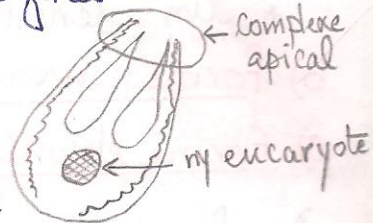 complexe
apical
ny eucaryote